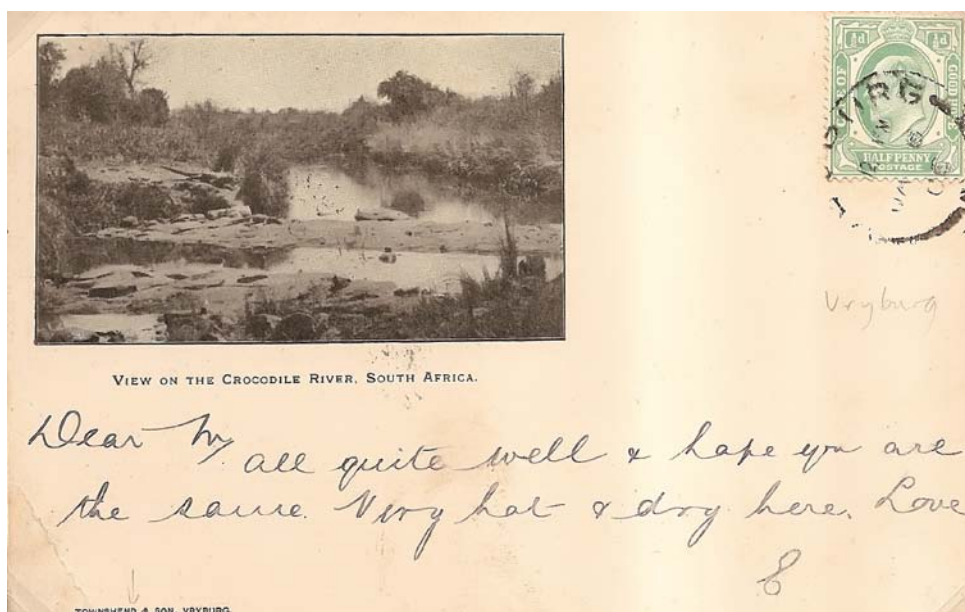 ½d ½d
OF GOOD
HALFPENNY
POSTAGE
Vryburg
VIEW ON THE CROCODILE RIVER, SOUTH AFRICA.
Dear
all quite well & hope you are
the same. Very hot & dry here. Love
E
TOWNSHEND & SON, VRYBURG.